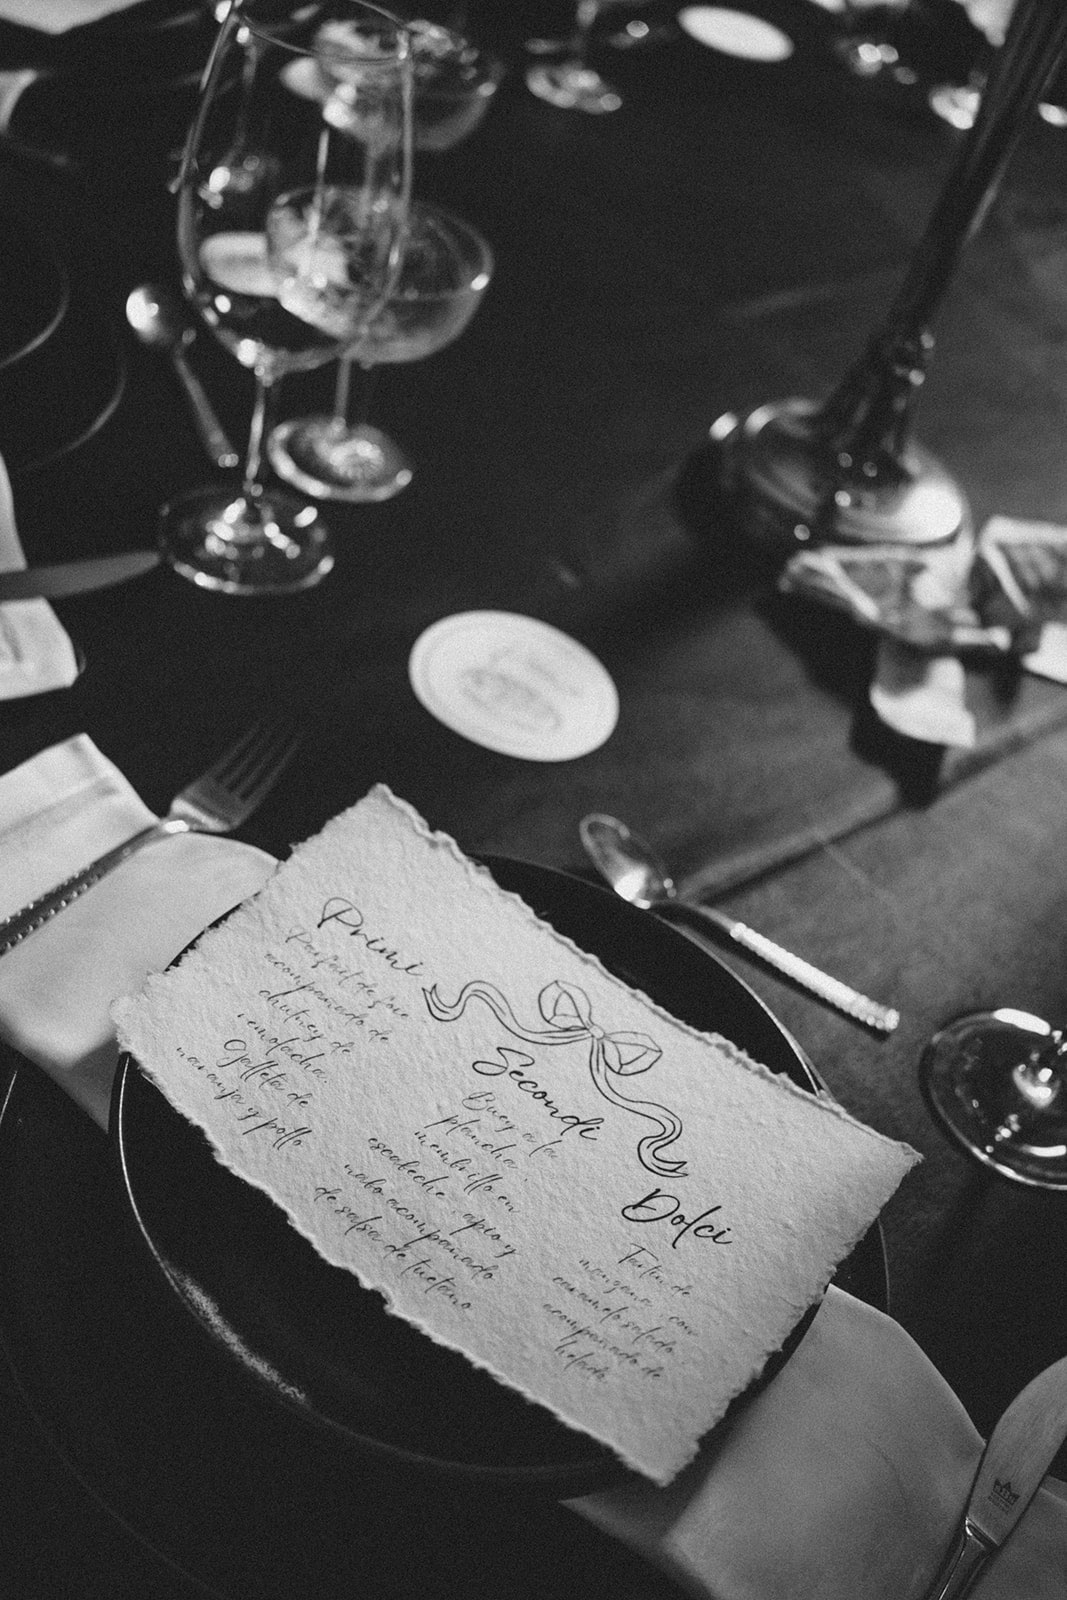 Primi
Parfait de foie
acompañado de
chutney de
remolacha.
Galleta de
naranja y pollo
Secondi
Buey a la
plancha,
membrillo en
escabeche, apio y
nabo acompañado
de salsa de tuetano
Dolci
Tartin de
manzana, con
caramelo salado,
acompañado de
helado.